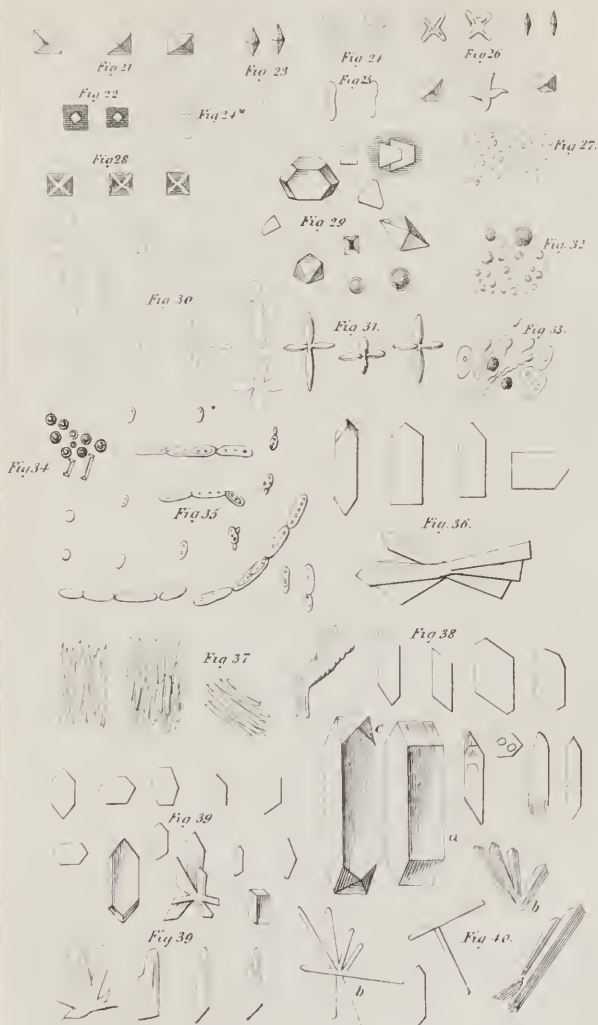 Fig 21
Fig 23
Fig 24
Fig 26
Fig 25
Fig 22
Fig 24*
Fig 27.
Fig 28
Fig 29
Fig 32
Fig 30
Fig 31.
Fig 33.
Fig 34
Fig 35
Fig. 36.
Fig 37
Fig 38
c
Fig 39
a
b
Fig 39
Fig 40.
b